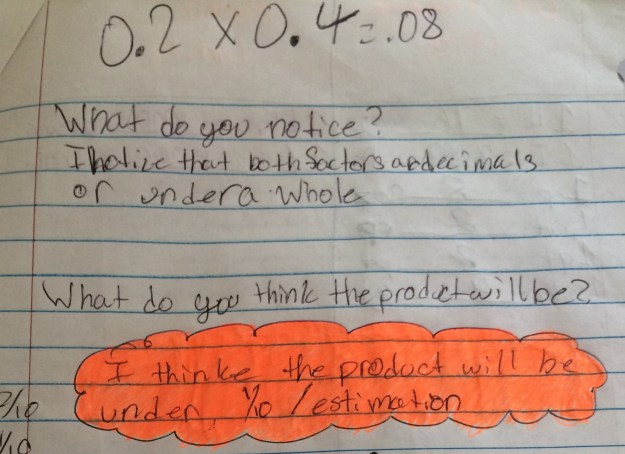 0.2 x 0.4 = .08
What do you notice?
I notice that both factors are decimals
or under a whole
What do you think the product will be?
I thinke the product will be
under, 1/10 / estimation
2/10
1/10